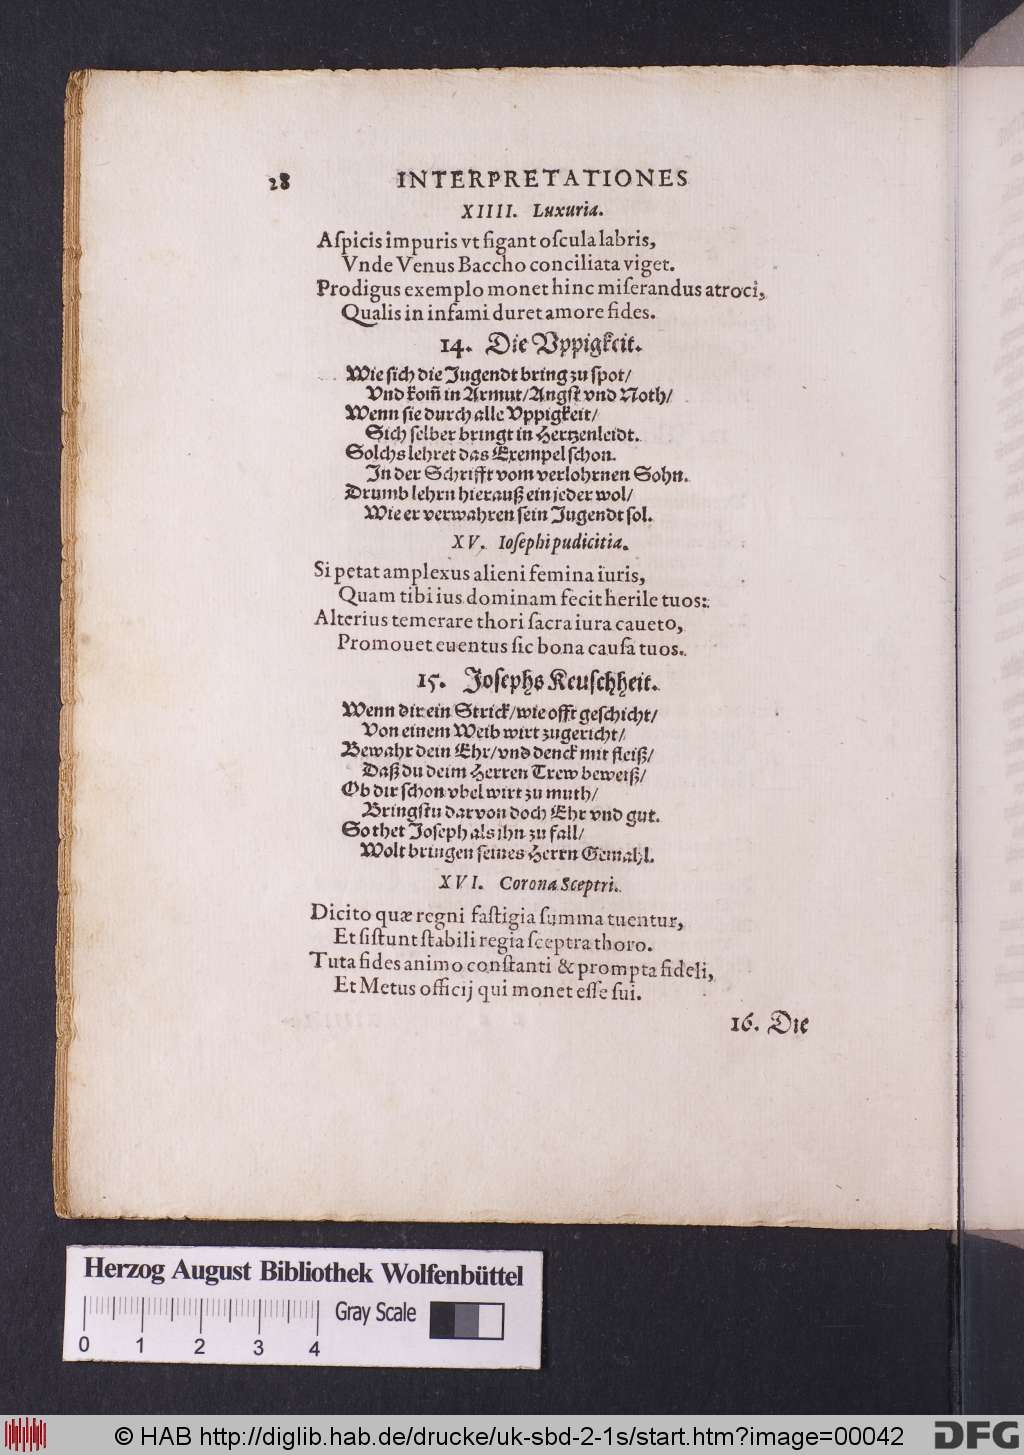 28 INTERPRETATIONES
XIIII. Luxuria.
Aſpicis impuris vt figant oſcula labris,
Vnde Venus Baccho conciliata viget.
Prodigus exemplo monet hinc miſerandus atroci,
Qualis in infami duret amore fides.
14. Die Vppigkeit.
Wie ſich die Jugendt bring zu ſpot/
Vnd kom̃ in Armut/Angſt vnd Noth/
Wenn ſie durch alle Vppigkeit/
Sich ſelber bringt in Hertzenleidt.
Solchs lehret das Exempel ſchon.
In der Schrifft vom verlohrnen Sohn.
Drumb lehrn hierauß ein jeder wol/
Wie er verwahren ſein Jugendt ſol.
XV. Ioſephi pudicitia.
Si petat amplexus alieni femina iuris,
Quam tibi ius dominam fecit herile tuos:
Alterius temerare thori ſacra iura caueto,
Promouet euentus ſic bona cauſa tuos.
15. Joſephs Keuſchheit.
Wenn dir ein Strick/wie offt geſchicht/
Von einem Weib wirt zugericht/
Bewahr dein Ehr/vnd denck mit fleiß/
Daß du deim Herren Trew beweiß/
Ob dir ſchon vbel wirt zu muth/
Bringſtu darvon doch Ehr vnd gut.
So thet Joſeph als ihn zu fall/
Wolt bringen ſeines Herrn Gemahl.
XVI. Corona Sceptri.
Dicito quæ regni faſtigia ſumma tuentur,
Et ſiſtunt ſtabili regia ſceptra thoro.
Tuta fides animo conſtanti & prompta fideli,
Et Metus officij qui monet eſſe ſui.
16. Die
Herzog August Bibliothek Wolfenbüttel
Gray Scale
0 1 2 3 4
© HAB http://diglib.hab.de/drucke/uk-sbd-2-1s/start.htm?image=00042
DFG